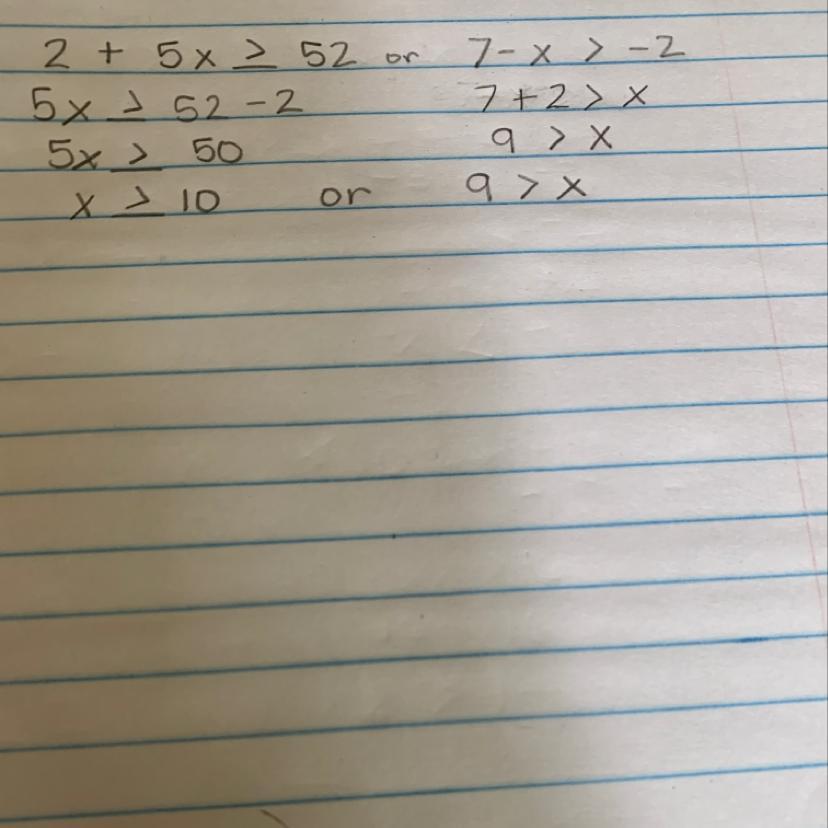 2 + 5x ≥ 52 or 7 - x > -2
5x ≥ 52 - 2 7 + 2 > x
5x ≥ 50 9 > x
x ≥ 10 or 9 > x